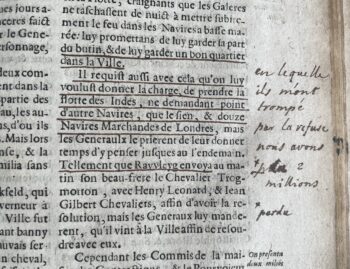 nes jours a-
rcher que
par le Gene-
rsonnage,
deux com-
t dans la
partie des
au, les au-
s, d'ou ils
. Mais lors
s se tint, &
milia sans
kfeld, qui
verneur à
Ville fut
tant banny
auvais ser-
n cheval,
craignants que les Galeres
ne taschassent de nuict à mettre subite-
ment le feu dans les Navires à basse ma-
rée: luy promettans de luy garder sa part
du butin, & de luy garder un bon quartier
dans la Ville.
Il requist aussi avec cela qu'on luy
voulust donner la charge, de prendre la
flotte des Indes, ne demandant point
d'autre Navires, que le sien, & douze
Navires Marchandes de Londres, mais
les Generaulx le prierent de leur donner
temps d'y penser jusques au l'endemain.
Tellement que Rawleyg envoya au ma-
tin son beau-frere le Chevalier Trog-
morton, avec Henry Leonard, & Jean
Gilbert Chevaliers, affin d'avoir la re-
solution, mais les Generaux luy mande-
rent, qu'il vint à la Ville affin de resou-
dre avec eux.
Cependant les Commis de la mai-
en laquelle
ils m'ont
trompé
par la refuse
nous avons
2
millions
* perdu
On presenta
deux milles